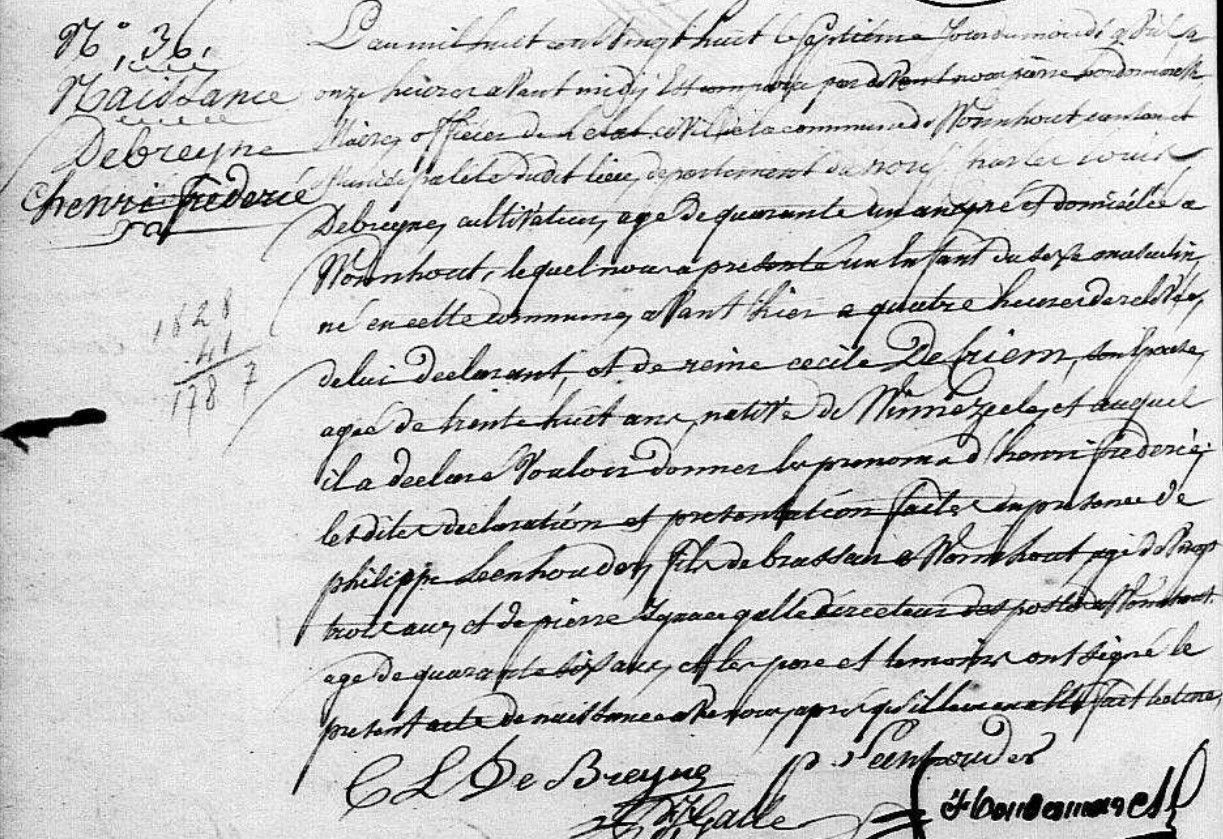 N°. 36.
Naissance
Debreyne
henri frederic
1828
41
1787
L'an mil huit cent vingt huit le septieme jour du mois d'avril a
onze heures avant midy Est comparu par devant nous pierre
Maire, officier de l'etat civil de la commune de Wormhout canton et
Municipalité dudit lieu, departement du nord, charles louis
Debreyne, cultivateur, age de quarante un ans, né et domicilié a
Wormhout, lequel nous a presenté un Enfant du sexe masculin,
né en cette commune, avant hier a quatre heures de relevée,
de lui declarant, et de reine cecile Debriem, son Epouse,
agée de trente huit ans, native de Winnezeele, et auquel
il a declaré Vouloir donner les prenoms d'henri frederic;
lesdites declaration et presentation faites en presence de
philippe Leenhouder, fils de brasseur a Wormhout, agé de Vingt
trois ans, et de pierre Ignace galle directeur des postes a Wormhout
age de quarante six ans, et les pere et temoins ont signé le
present acte de naissance avec nous, apres qu'il leur en a Eté fait lecture,
C L De Breyne
p. Leenhouder
Galle